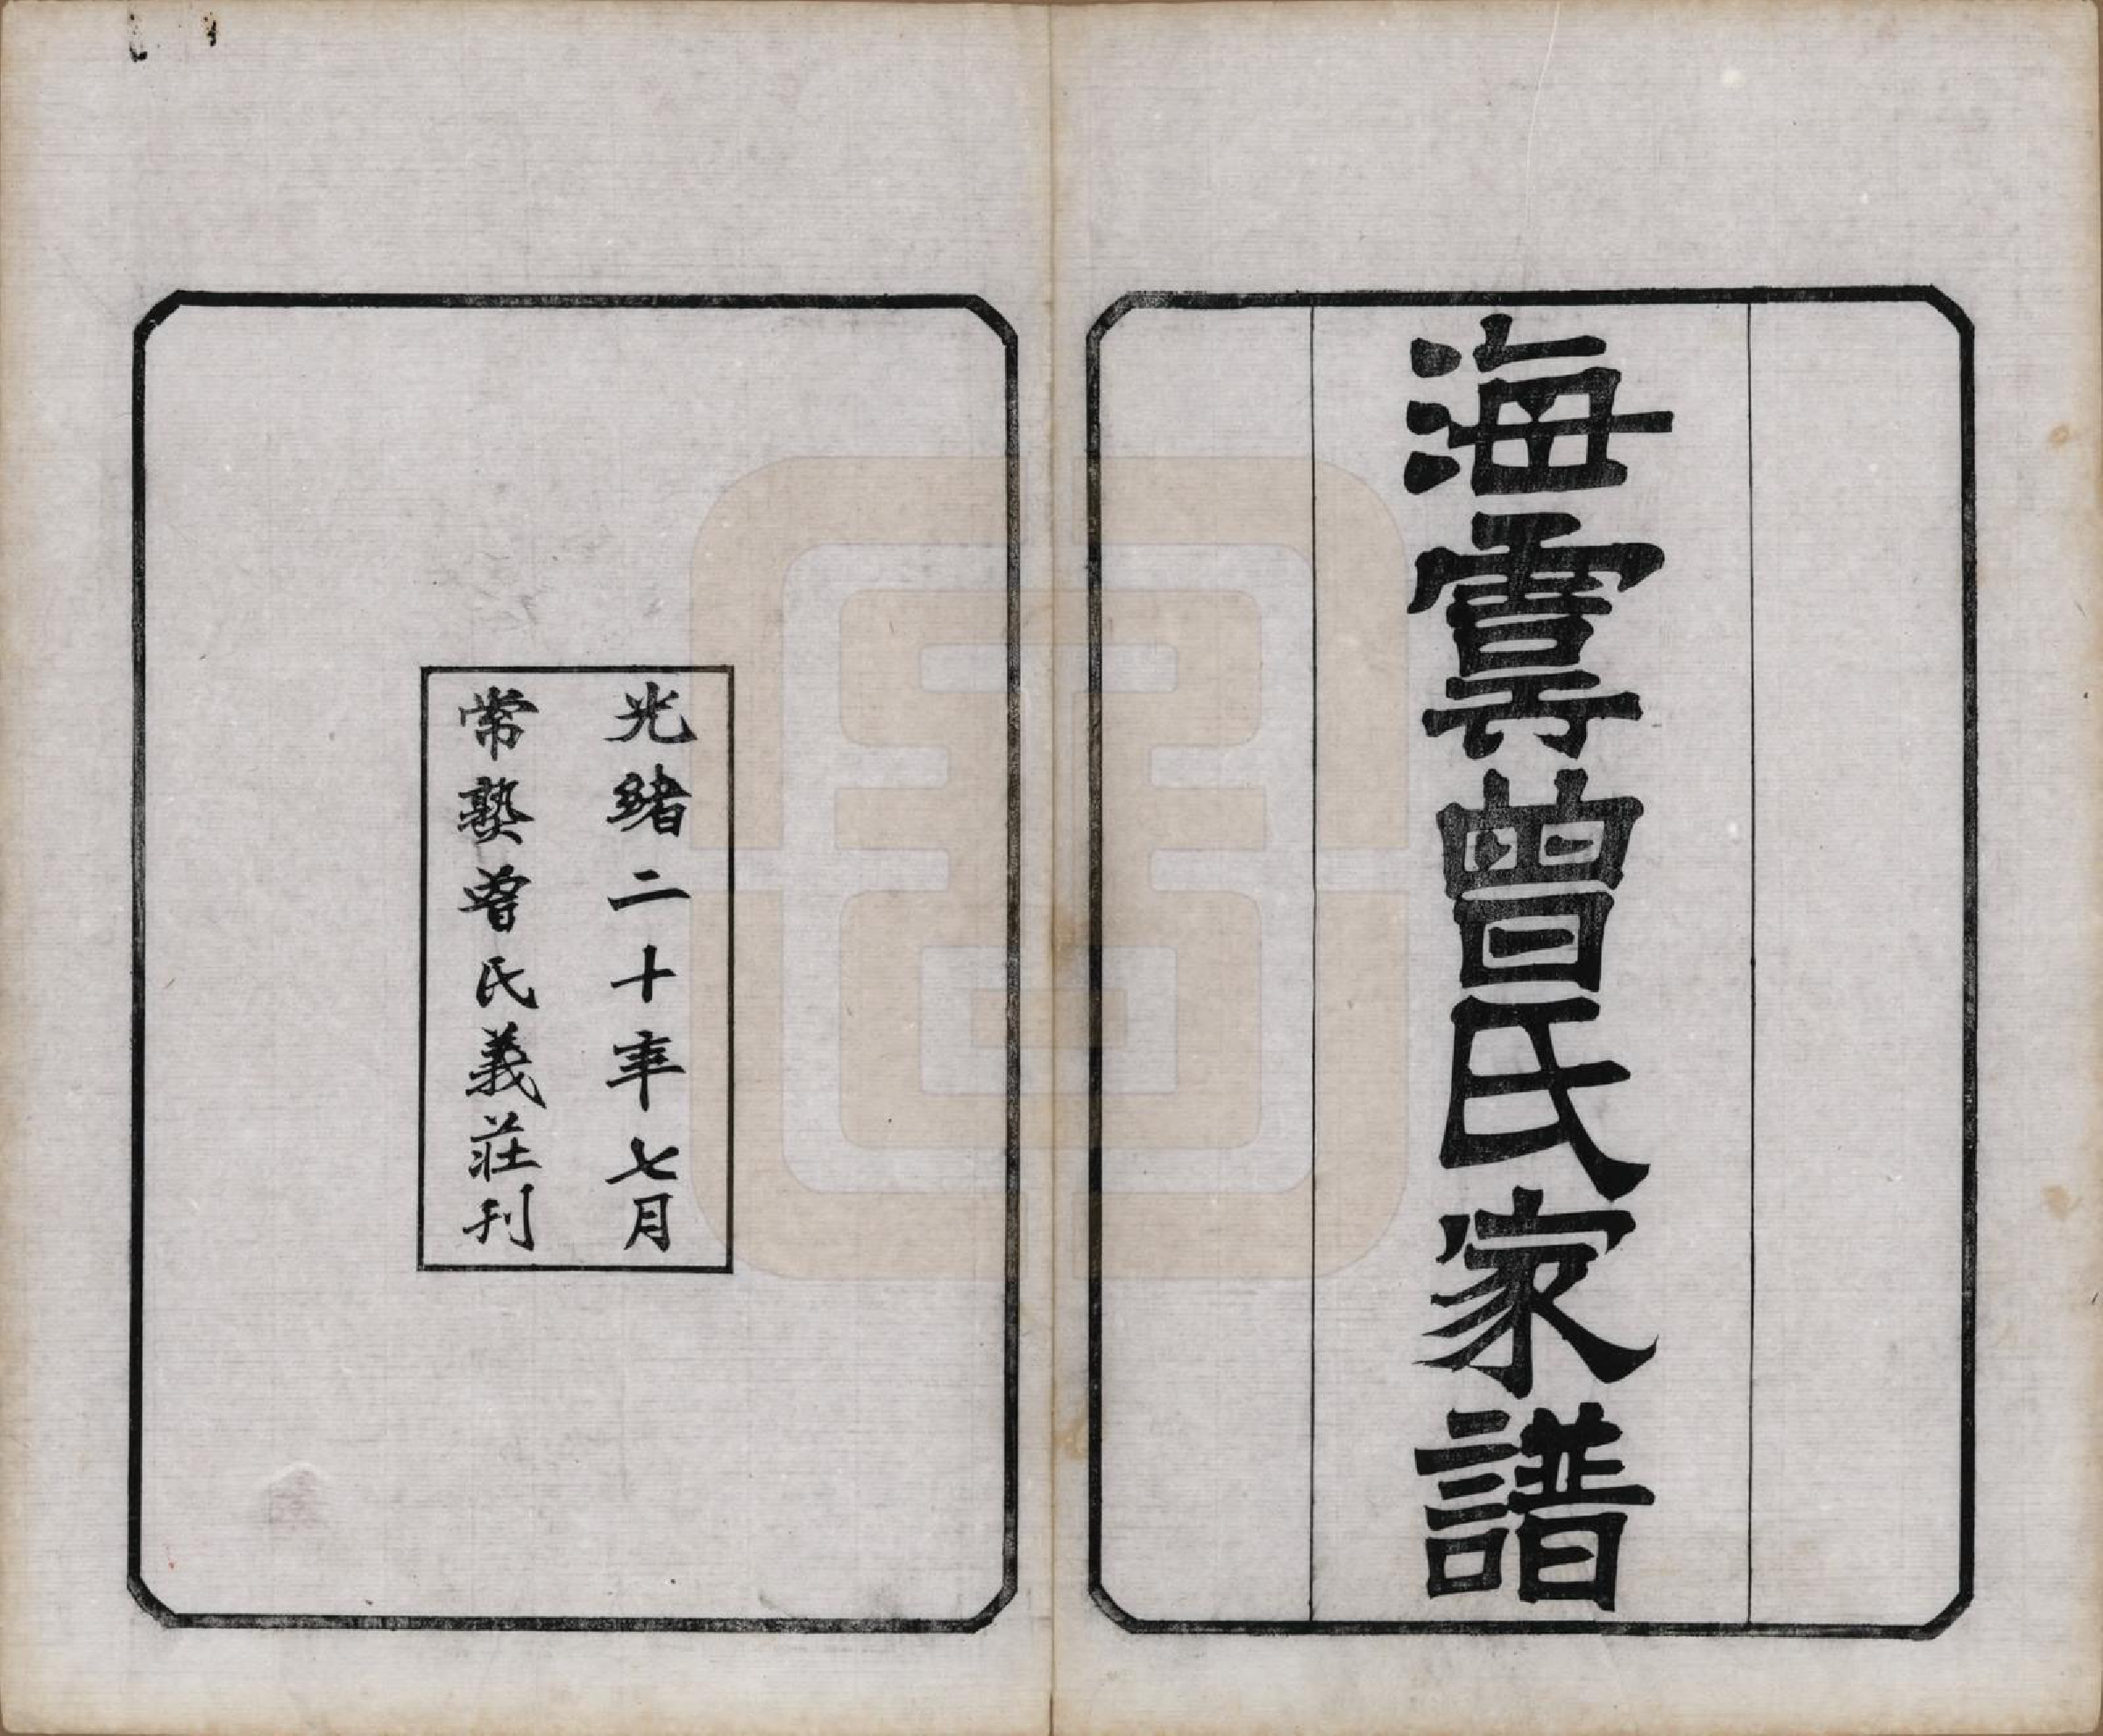 海虞曾氏家譜
光緒二十年七月
常熟曾氏義莊刊